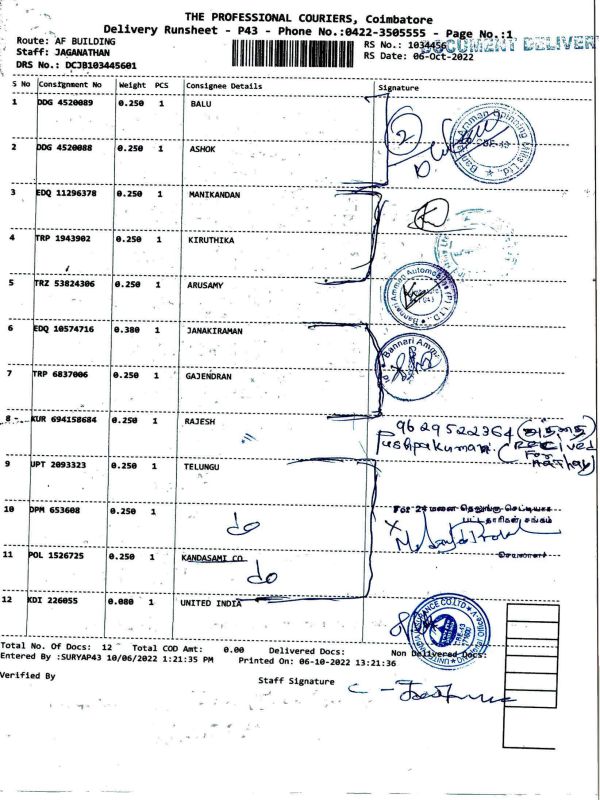 THE PROFESSIONAL COURIERS, Coimbatore
Delivery Runsheet - P43 - Phone No.:0422-3505555 - Page No.:1
Route: AF BUILDING
RS No.: 1034456
DOCUMENT DELIVER
Staff: JAGANATHAN
RS Date: 06-Oct-2022
DRS No.: DCJB103445601
S No Consignment No Weight PCS Consignee Details Signature
1 DDG 4520089 0.250 1 BALU
2
2 DDG 4520088 0.250 1 ASHOK
3 EDQ 11296378 0.250 1 MANIKANDAN
4 TRP 1943902 0.250 1 KIRUTHIKA
5 TRZ 53824306 0.250 1 ARUSAMY
Bannari Amman Automobiles (P) LTD
6 EDQ 10574716 0.380 1 JANAKIRAMAN
Bannari Amm
7 TRP 6837006 0.250 1 GAJENDRAN
8 KUR 694158684 0.250 1 RAJESH
9629522364
Pushpakumari (Received
For
9 UPT 2093323 0.250 1 TELUNGU
10 DPM 653608 0.250 1
For 24 மனை தெலுங்கு செட்டியார்
பட்டதாரிகள் சங்கம்
do
11 POL 1526725 0.250 1 KANDASAMI CO
செயலாளர்
do
12 KDI 226055 0.080 1 UNITED INDIA
Total No. Of Docs: 12 Total COD Amt: 0.00 Delivered Docs: Non Delivered Docs:
Entered By :SURYAP43 10/06/2022 1:21:35 PM Printed On: 06-10-2022 13:21:36
Verified By
Staff Signature